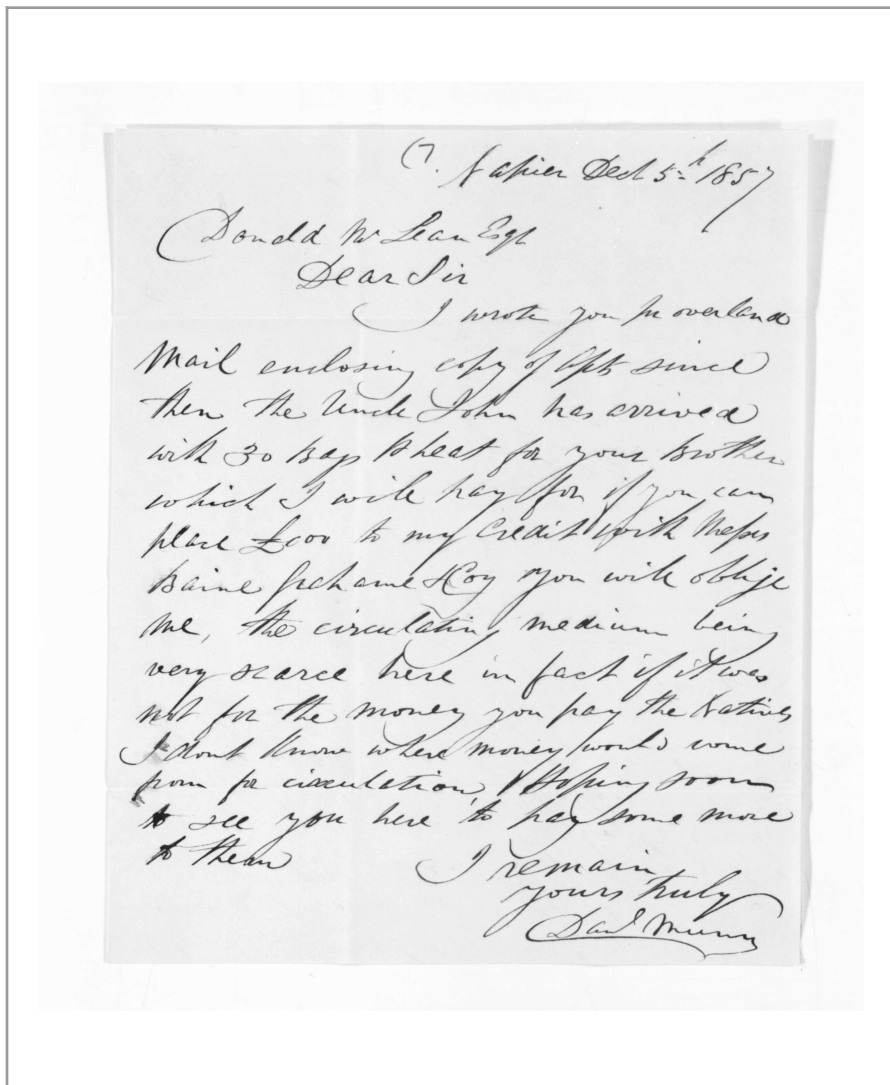 Napier Dec 5th 1857
Donald McLean Esqr
Dear Sir
I wrote you pr overland
Mail enclosing copy of since
then the Uncle John has arrived
with 30 Bags Wheat for your Brother
which I will pay for if you can
place to my Credit with Messrs
Baine Grahame & Coy you will oblige
me, the circulating medium being
very scarce here in fact if it was
not for the money you pay the Natives
I dont know where money would come
from for circulation, Hoping soon
to see you here to pay some more
to them
I remain
yours truly
Danl Munn